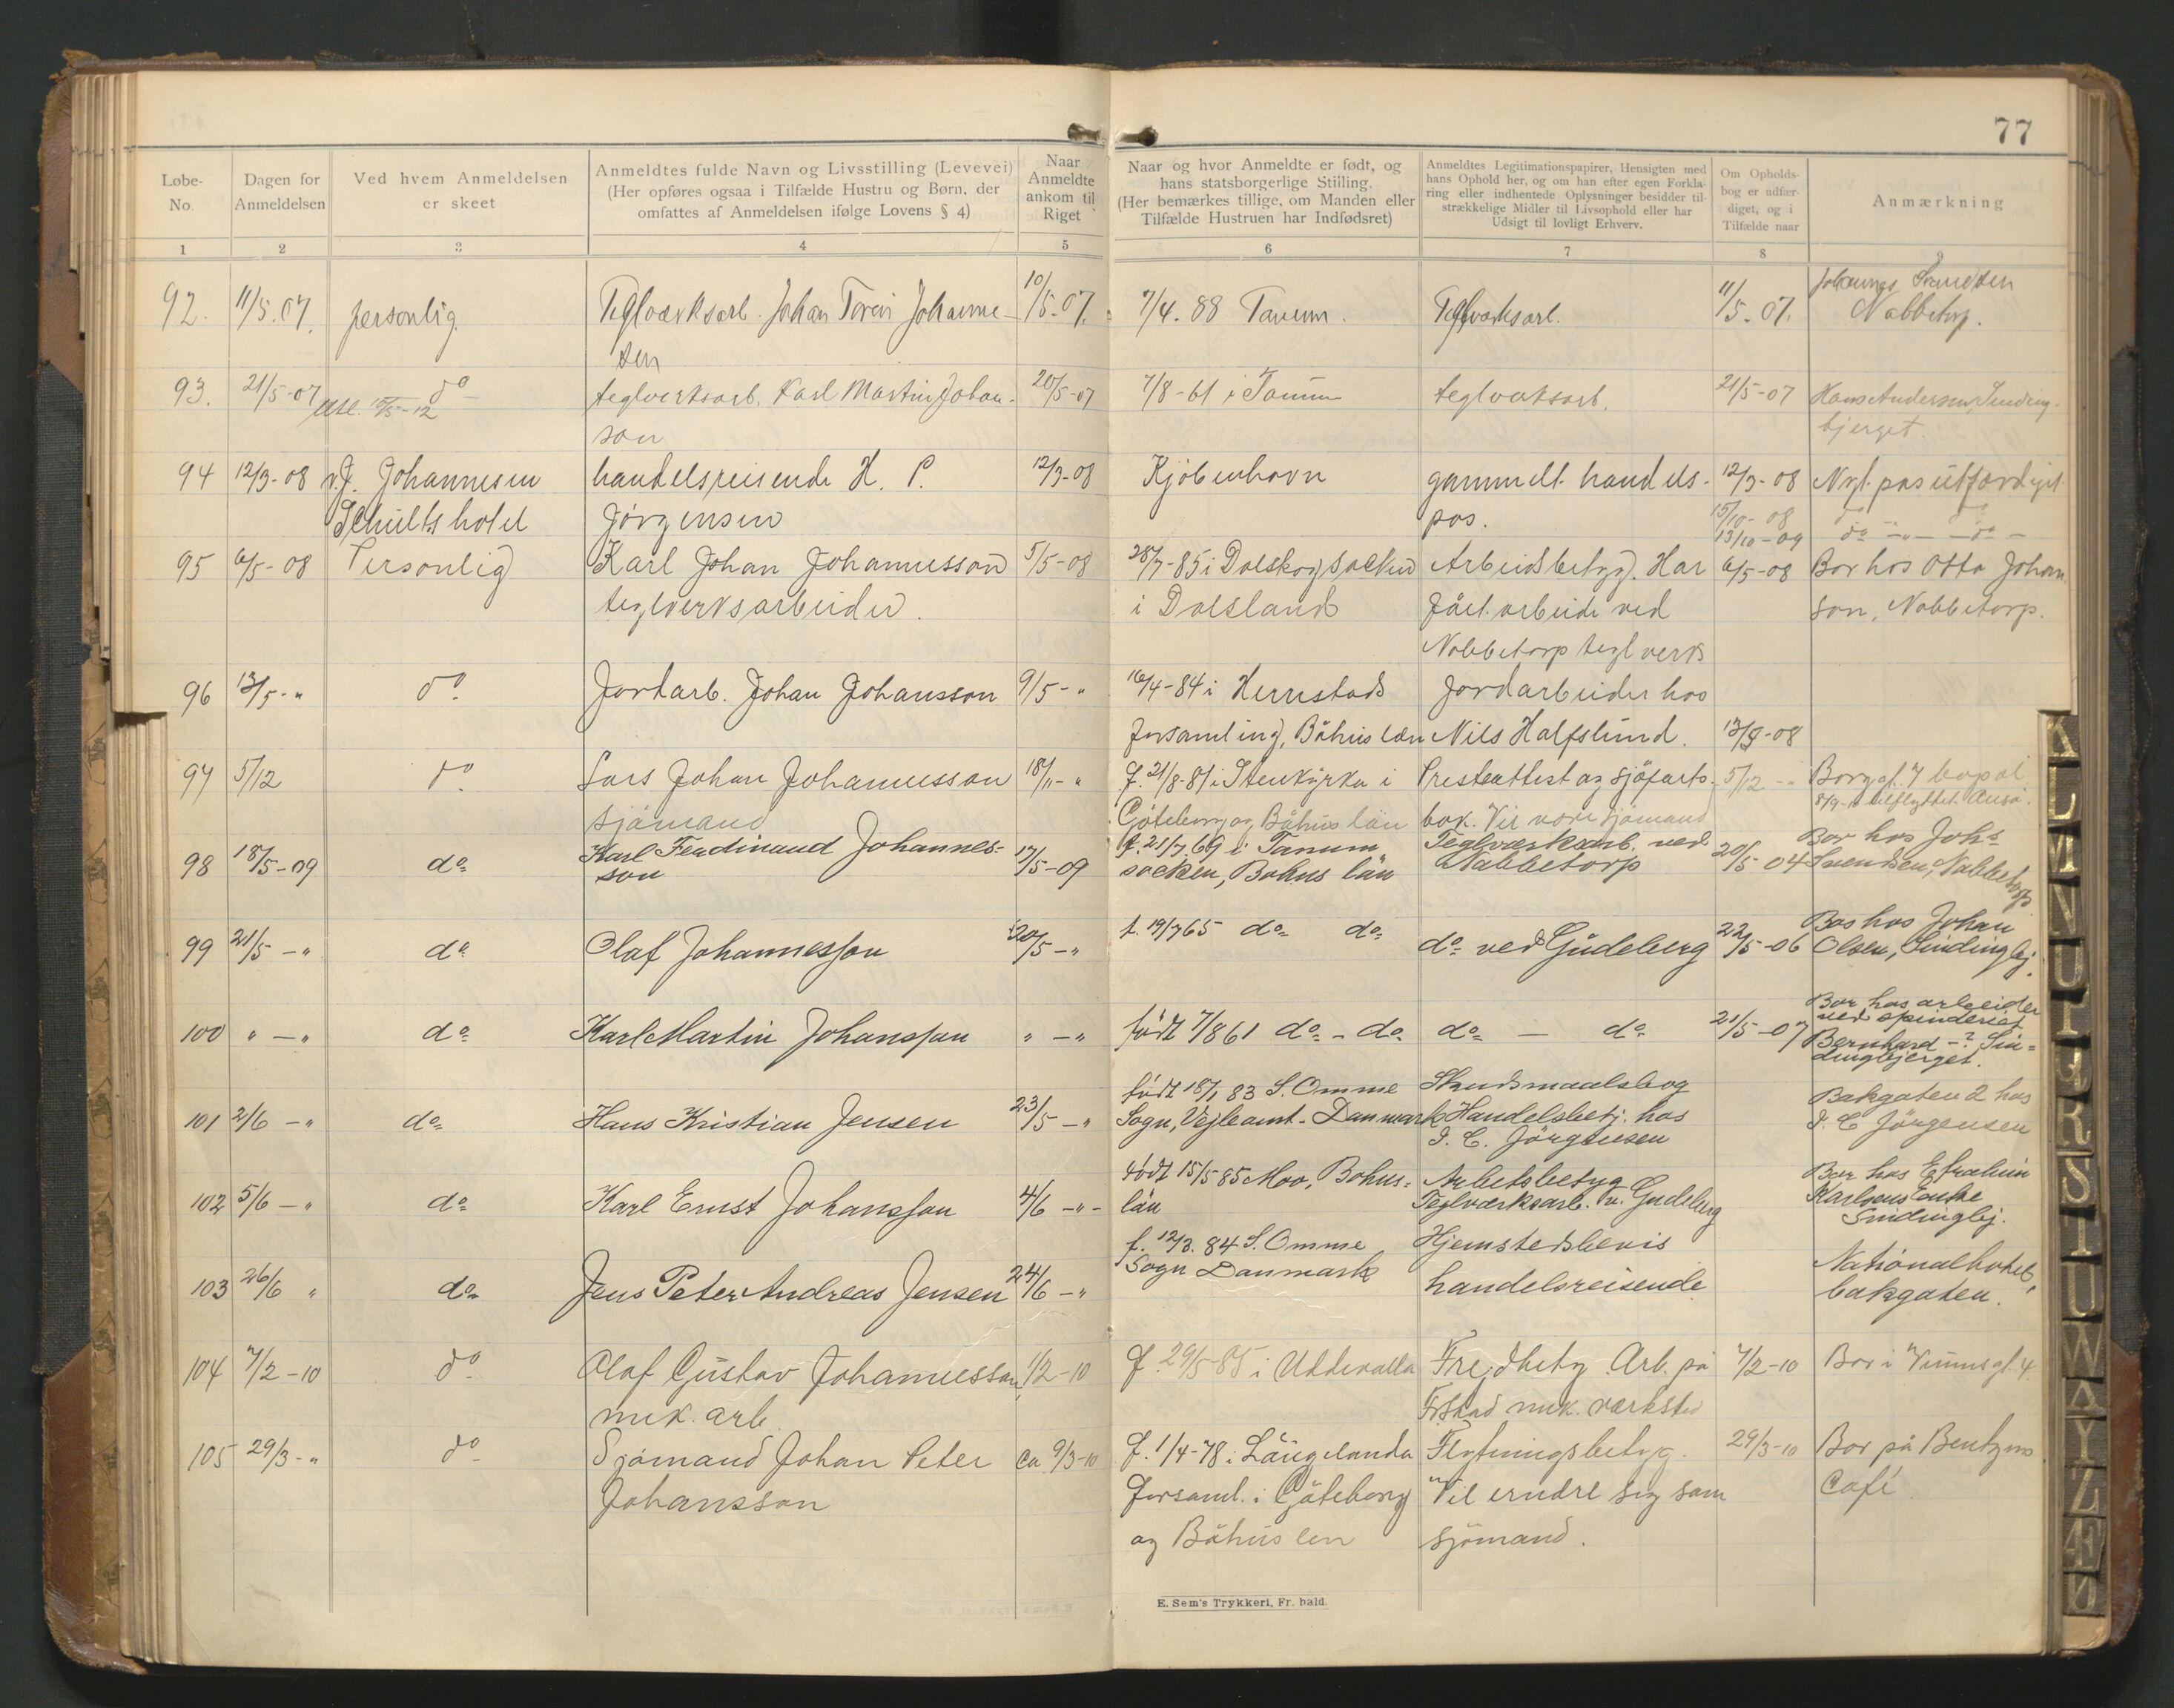 77
Løbe-No.
Dagen for Anmeldelsen
Ved hvem Anmeldelsen er skeet
Anmeldtes fulde Navn og Livsstilling (Levevei) (Her opføres ogsaa i Tilfælde Hustru og Børn, der omfattes af Anmeldelsen ifølge Lovens § 4)
Naar Anmeldte ankom til Riget
Naar og hvor Anmeldte er født, og hans statsborgerlige Stiilling. (Her bemærkes tillige, om Manden eller Tilfælde Hustruen har Indfødsret)
Anmeldtes Legitimationspapirer, Hensigten med hans Ophold her, og om han efter egen Forklaring eller indhentede Oplysninger besidder tilstrækkelige Midler til Livsophold eller har Udsigt til lovligt Erhverv.
Om Opholdsbog er udfærdiget, og i Tilfælde naar
Anmærkning
1 2 3 4 5 6 7 8 9
92. 11/5.07. personlig. Teglværksarb. Johan Johanne- 10/5-07. 7/4-88 Tanum. Teglværksarb. 11/5-07. Johannes Svendsen
sen Nabbetorp.
93. 21/5-07 do teglverksarb. Karl Martin Johan- 20/5-07 7/8-61 i Tanum teglverksarb. 21/5-07 Hans Andersen, Sinding-
15/5-12
son bjerget.
94 12/3-08 v. J. Johannesen handelsreisende H. P. 12/3-08 Kjöbenhavn gammelt handels- 12/3-08 Nyt pas utfærdiget
Schults hotel Jörgensen pas. 15/10-08 do
13/10-09 do -"- do -
95 6/5-08 Personlig Karl Johan Johannesson 5/5-08 28/7-85 i Dalskog socken Arbeidsbetyg. Har 6/5-08 Bor hos Otto Johan
teglverksarbeider. i Dalsland fået arbeide ved son, Nabbetorp.
Nabbetorp teglverk
96 13/5-" do Jordarb. Johan Johansson 9/5-" 16/4-84 i Herrestads Jordarbeider hos
forsamling, Båhus len Nils Halfslund. 13/5-08
97 5/12 do Lars Johan Johannesson 18/11-" f. 21/8-81 i Stenkyrka i Presteattest og sjöfarts- 5/12 -- Borg gt. 7
sjömand Göteborg og Båhus län bok. Vil være sjömand
98 18/5-09 do Karl Ferdinand Johannes- 17/5-09 f. 21/7.69 i Tanum Teglværksarb. ved 20/5-04 Bor hos Johs
son socken, Bohus län Nabbetorp Svendsen, Nabbetorp
99 21/5-" do Olaf Johannesson 20/5-" f. 19/7 65 do do do ved Gudeberg 22/5-06 Bor hos Johan
Olsen, Sindingbj.
100 " - " do Karl Martin Johansson " - " födt 7/8 61 do - do do - do 21/5-07 Bor hos arbeider
ved spinderiet
Bernhard -? Sin-
dingbjerget.
101 2/6 -" do Hans Kristian Jensen 23/5-" födt 18/1 83 S. Omme Skudsmaalsbog Bakgaten 2 hos
Sogn, Vejle amt. Danmark Handelsbetj. hos I. C. Jörgensen
I. C. Jörgensen
102 5/6 -" do Karl Ernst Johansson 4/6 -"- födt 15/5 85 Moo, Bohus- Arbetsbetyg Bor hos Efraim
län Teglværksarb. v. Gudeberg Karlsens Enke
Sindingbj.
103 26/6 " do Jens Peter Andreas Jensen 24/6 -" f. 12/3. 84 S. Omme Hjemstedsbevis Nationalhotel,
Sogn Danmark handelsreisende bakgaten.
104 7/2-10 do Olaf Gustav Johannesson 1/2-10 f. 29/5-85 i Uddevalla Frejdbetyg Arb. på 7/2-10 Bor i
mek. arb. Fr.stad mek. værksted
105 29/3-" do Sjömand Johan Peter ca 9/3-10 f. 1/4-78 i Långelanda Flytningsbetyg. 29/3-10 Bor på Bentzens
Johansson forsaml. i Göteborg Vil ernære sig som Café
og Båhus len sjömand.
E. Sem's Trykkeri, Fr. hald.
K L M N U P R S T U W Y Z Æ Ø